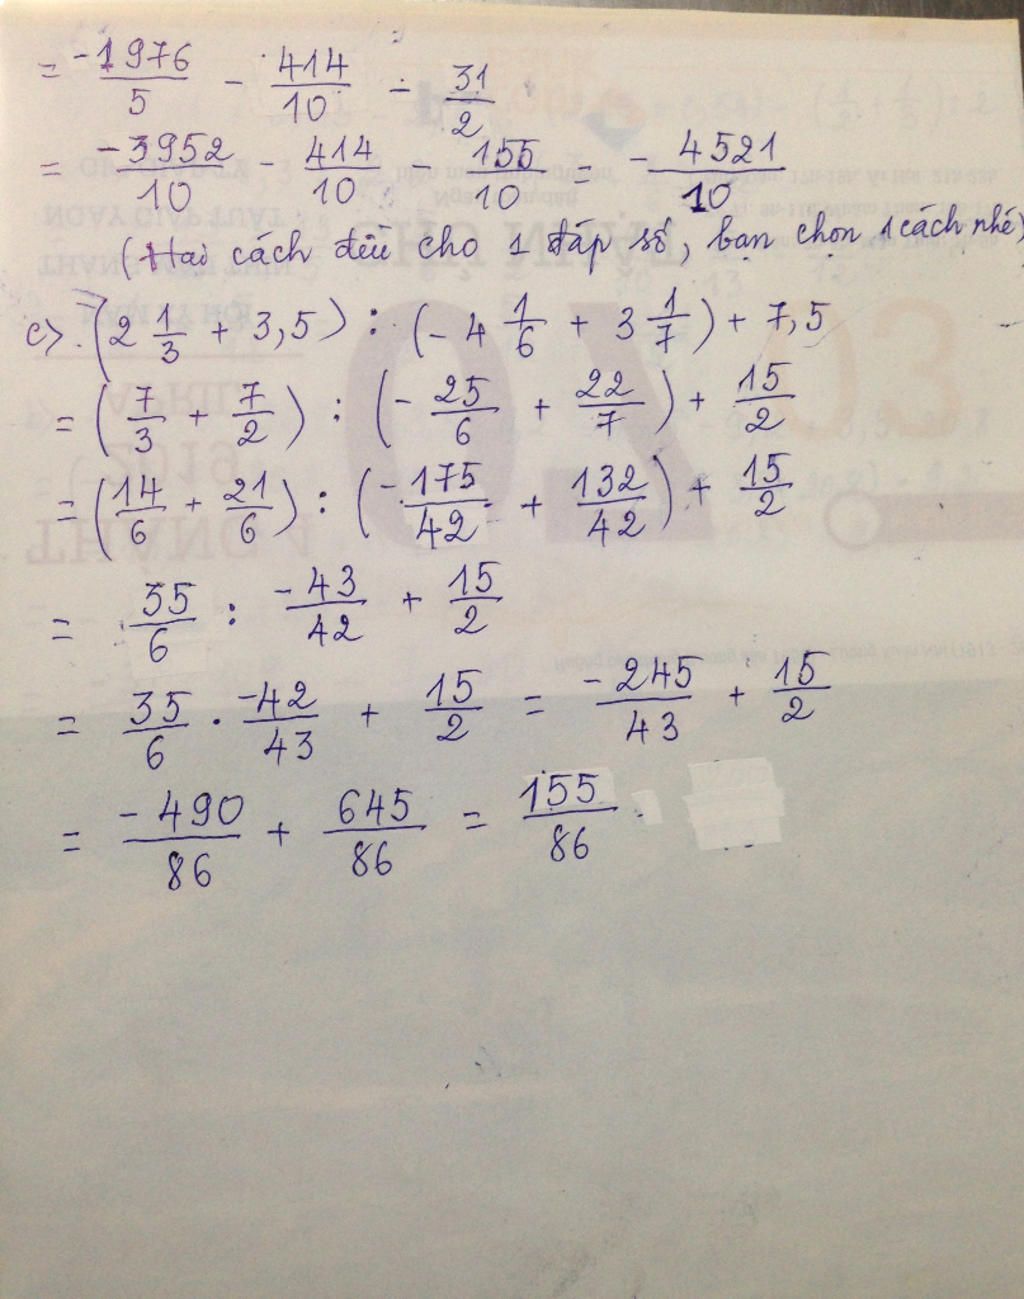 = -1976/5 - 414/10 - 31/2
= -3952/10 - 414/10 - 155/10 = - 4521/10
(Hai cách đều cho 1 đáp số, bạn chọn 1 cách nhé)
c) (2 1/3 + 3,5) : (- 4 1/6 + 3 1/7) + 7,5
= (7/3 + 7/2) : (- 25/6 + 22/7) + 15/2
= (14/6 + 21/6) : (-175/42 + 132/42) + 15/2
= 35/6 : -43/42 + 15/2
= 35/6 . -42/43 + 15/2 = -245/43 + 15/2
= -490/86 + 645/86 = 155/86